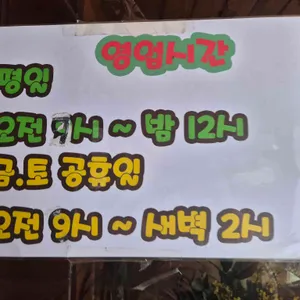 영업시간
평일
오전 9시 ~ 밤 12시
금.토 공휴일
오전 9시 ~ 새벽 2시